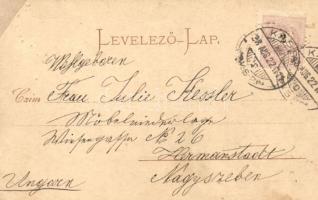 LEVELEZŐ-LAP.
Wohlgeboren
Czim Frau Julie Kessler
Möbelniederlage
Wiesengasse No 26
Hermannstadt
Ungarn Nagyszeben